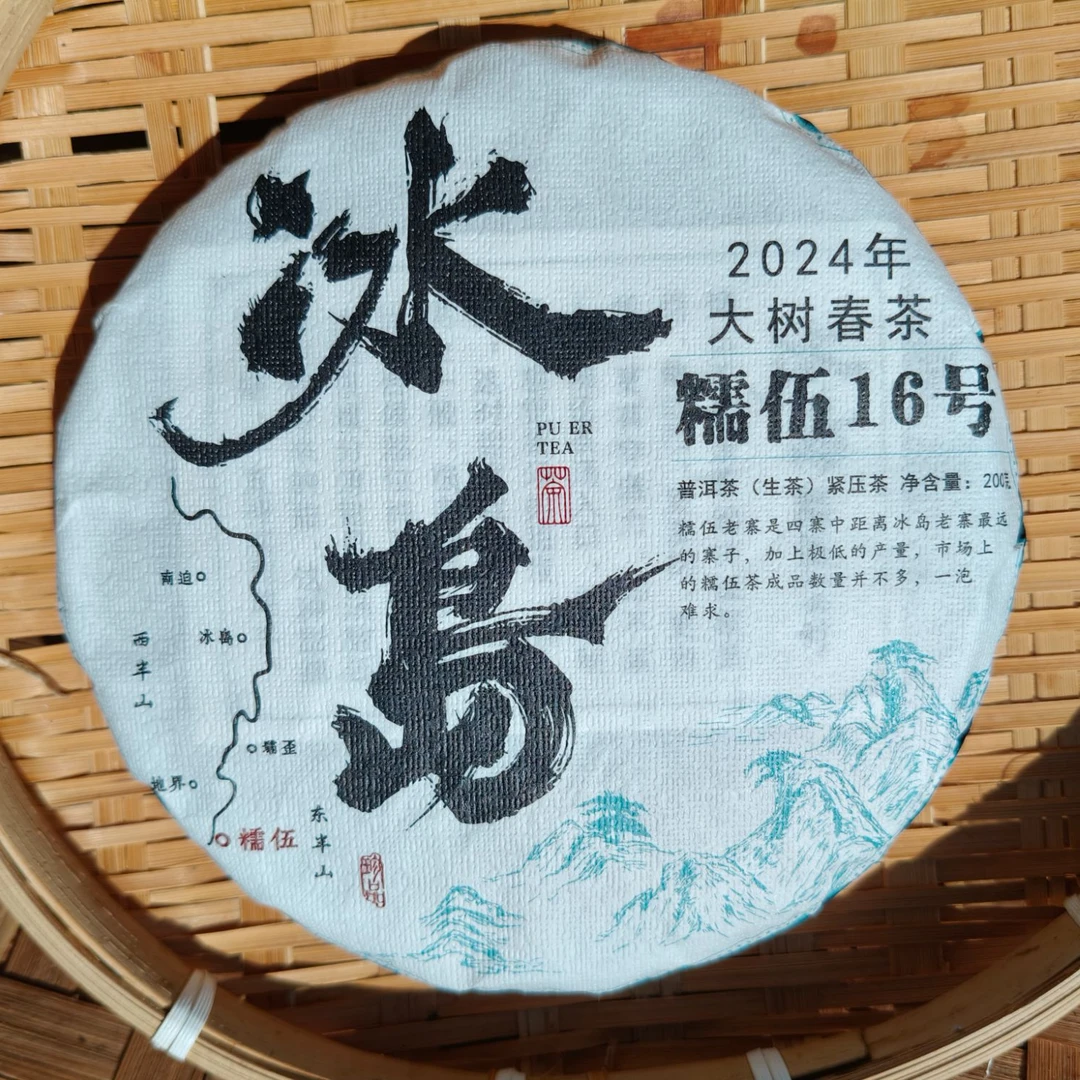 冰岛
2024年
大树春茶
糯伍16号
PU ER
TEA
茶
普洱茶（生茶）紧压茶 净含量：200克
糯伍老寨是四寨中距离冰岛老寨最远
的寨子，加上极低的产量，市场上
的糯伍茶成品数量并不多，一泡
难求。
南迫
冰岛
西半山
坝歪
地界
糯伍
东半山
珍品